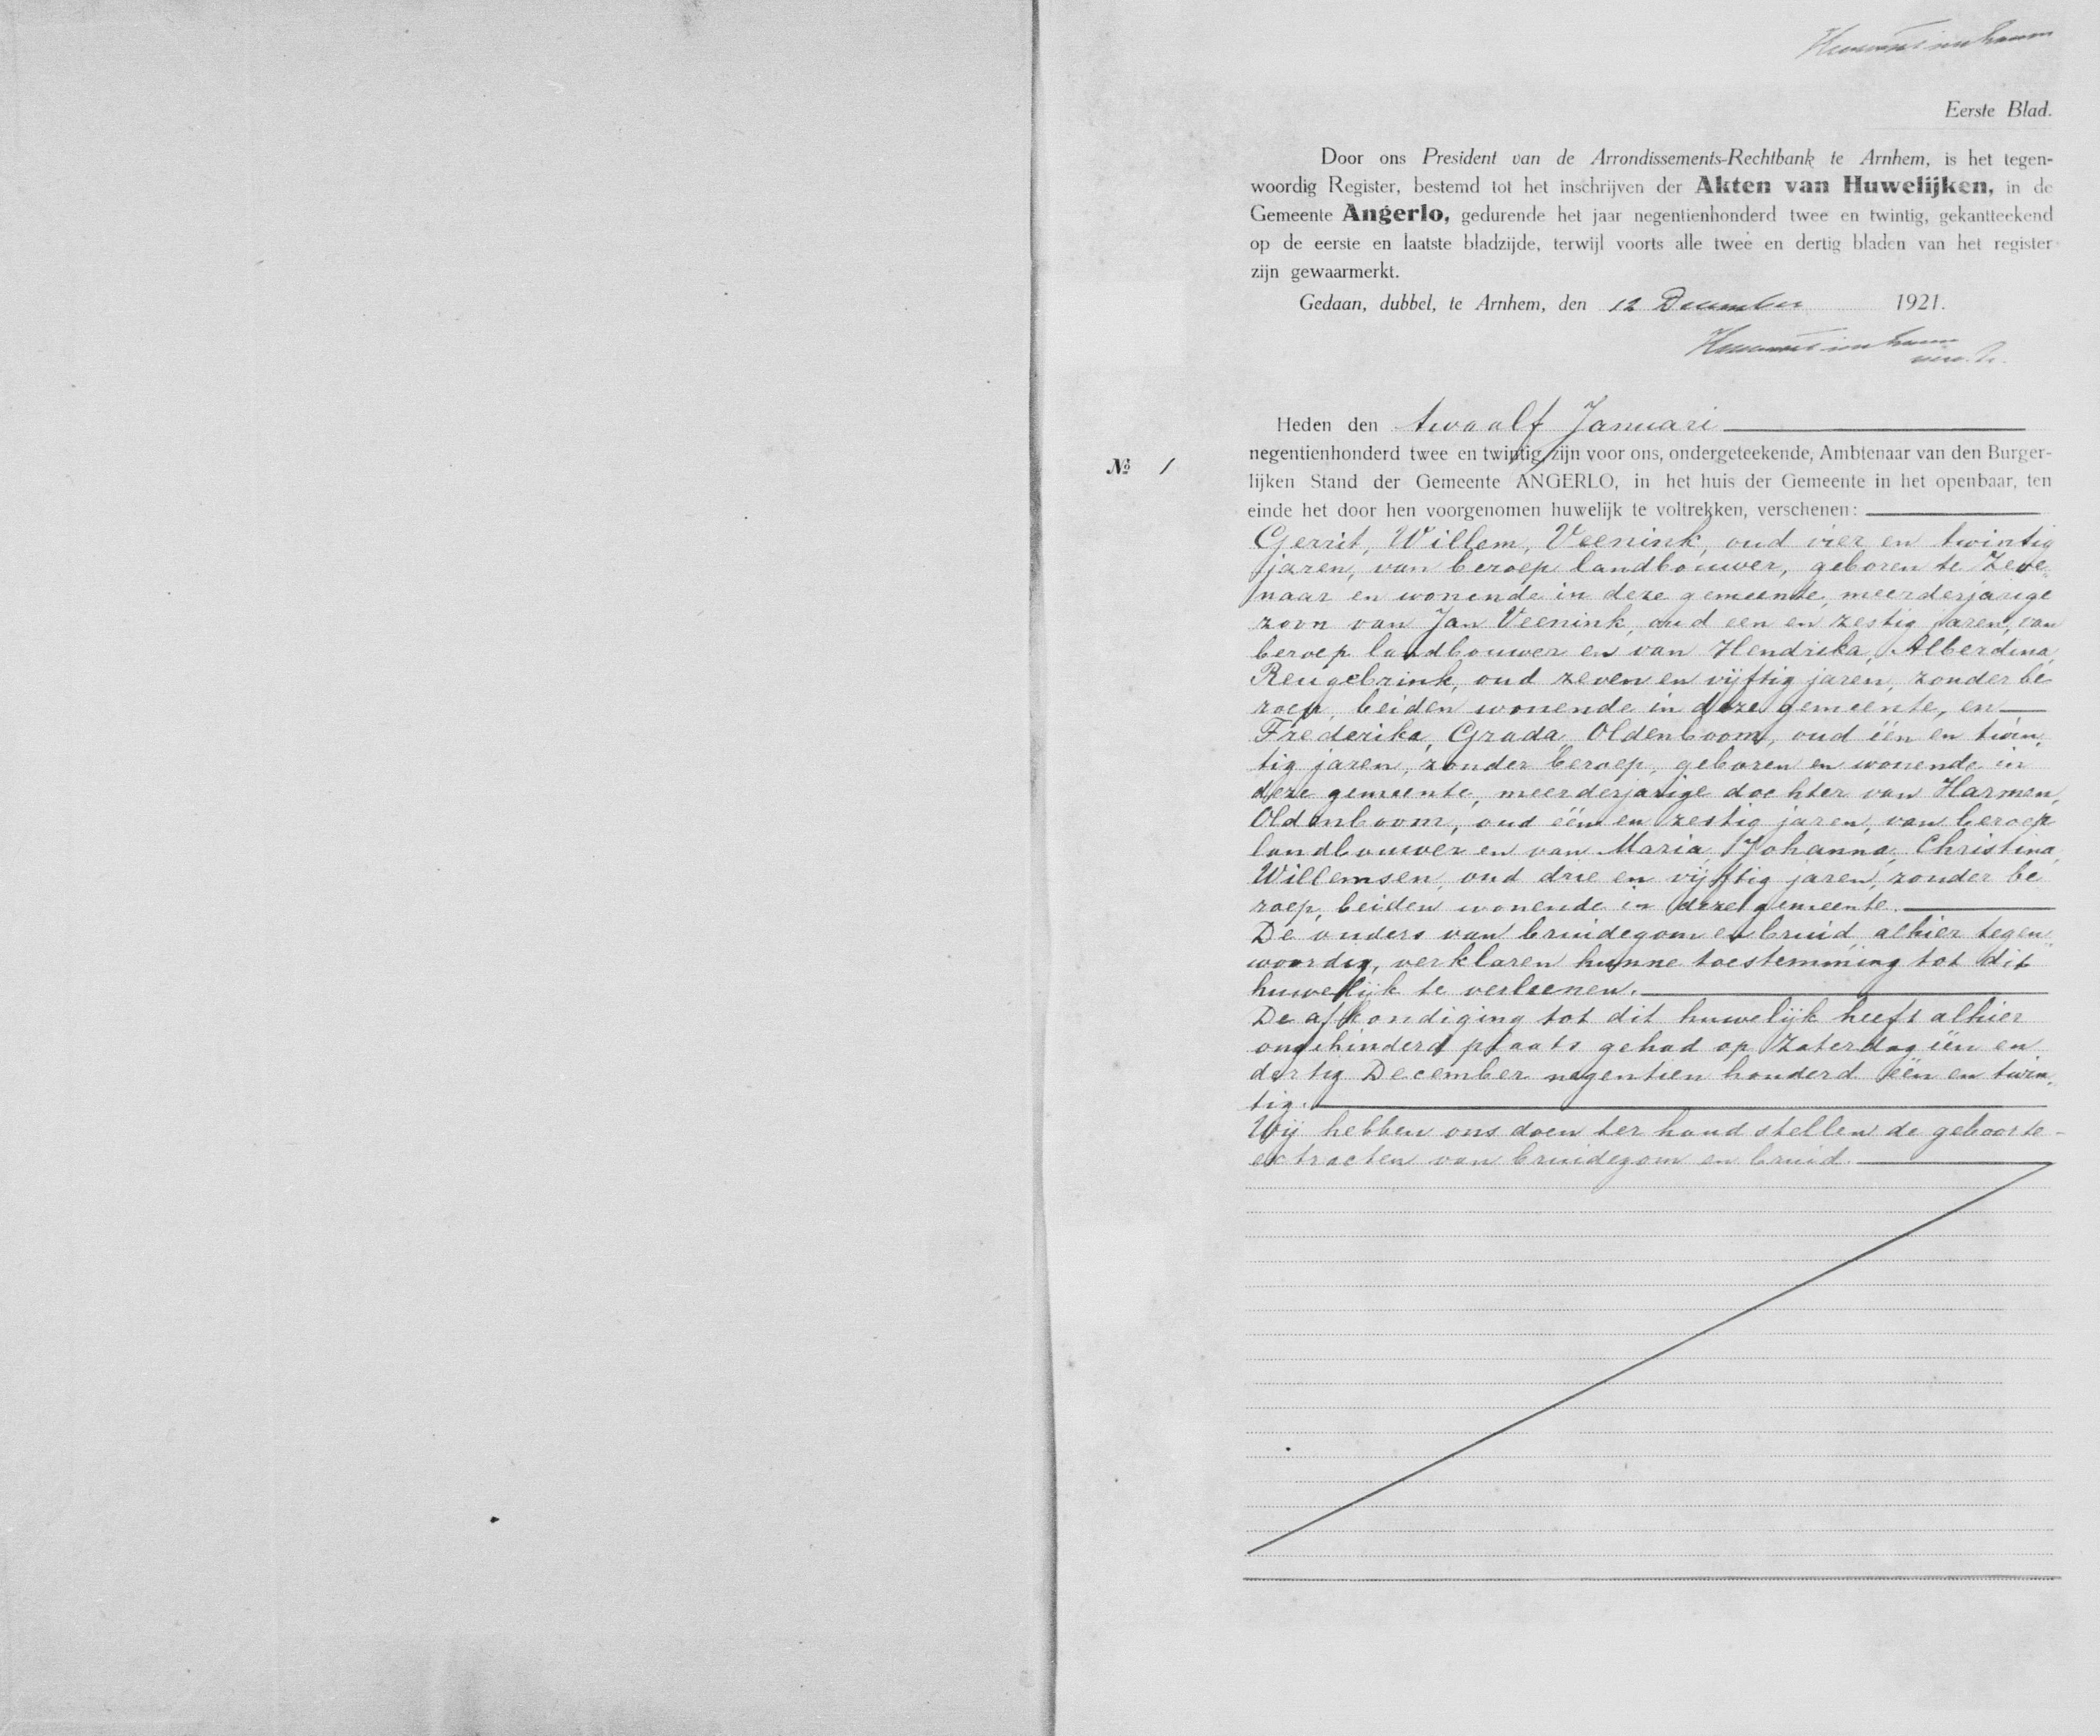 Eerste Blad.
Door ons President van de Arrondissements-Rechtbank te Arnhem, is het tegen-
woordig Register, bestemd tot het inschrijven der Akten van Huwelijken, in de
Gemeente Angerlo, gedurende het jaar negentienhonderd twee en twintig, gekantteekend
op de eerste en laatste bladzijde, terwijl voorts alle twee en dertig bladen van het register
zijn gewaarmerkt.
Gedaan, dubbel, te Arnhem, den 12 December 1921.
Heden den twaalf Januari
negentienhonderd twee en twintig, zijn voor ons, ondergeteekende, Ambtenaar van den Burger-
No 1
lijken Stand der Gemeente ANGERLO, in het huis der Gemeente in het openbaar, ten
einde het door hen voorgenomen huwelijk te voltrekken, verschenen:
Gerrit, Willem, Veenink, oud vier en twintig
jaren, van beroep landbouwer, geboren te Zeve„
naar en wonende in deze gemeente, meerderjarige
zoon van Jan Veenink, oud een en zestig jaren, van
beroep landbouwer en van Hendrika, Alberdina,
Reugebrink, oud zeven en vijftig jaren, zonder be
roep, beiden wonende in deze gemeente, en
Frederika, Grada, Oldenboom, oud één en twin„
tig jaren, zonder beroep, geboren en wonende in
deze gemeente, meerderjarige dochter van Harmen,
Oldenboom, oud één en zestig jaren, van beroep
landbouwer en van Maria, Johanna, Christina,
Willemsen, oud drie en vijftig jaren, zonder be
roep, beiden wonende in deze gemeente.
De ouders van bruidegom en bruid, alhier tegen„
woordig, verklaren hunne toestemming tot dit
huwelijk te verleenen.
De afkondiging tot dit huwelijk heeft alhier
ongehinderd plaats gehad op Zaterdag één en
dertig December negentien honderd één en twin„
tig.
Wij hebben ons doen ter hand stellen de geboorte-
extracten van bruidegom en bruid.